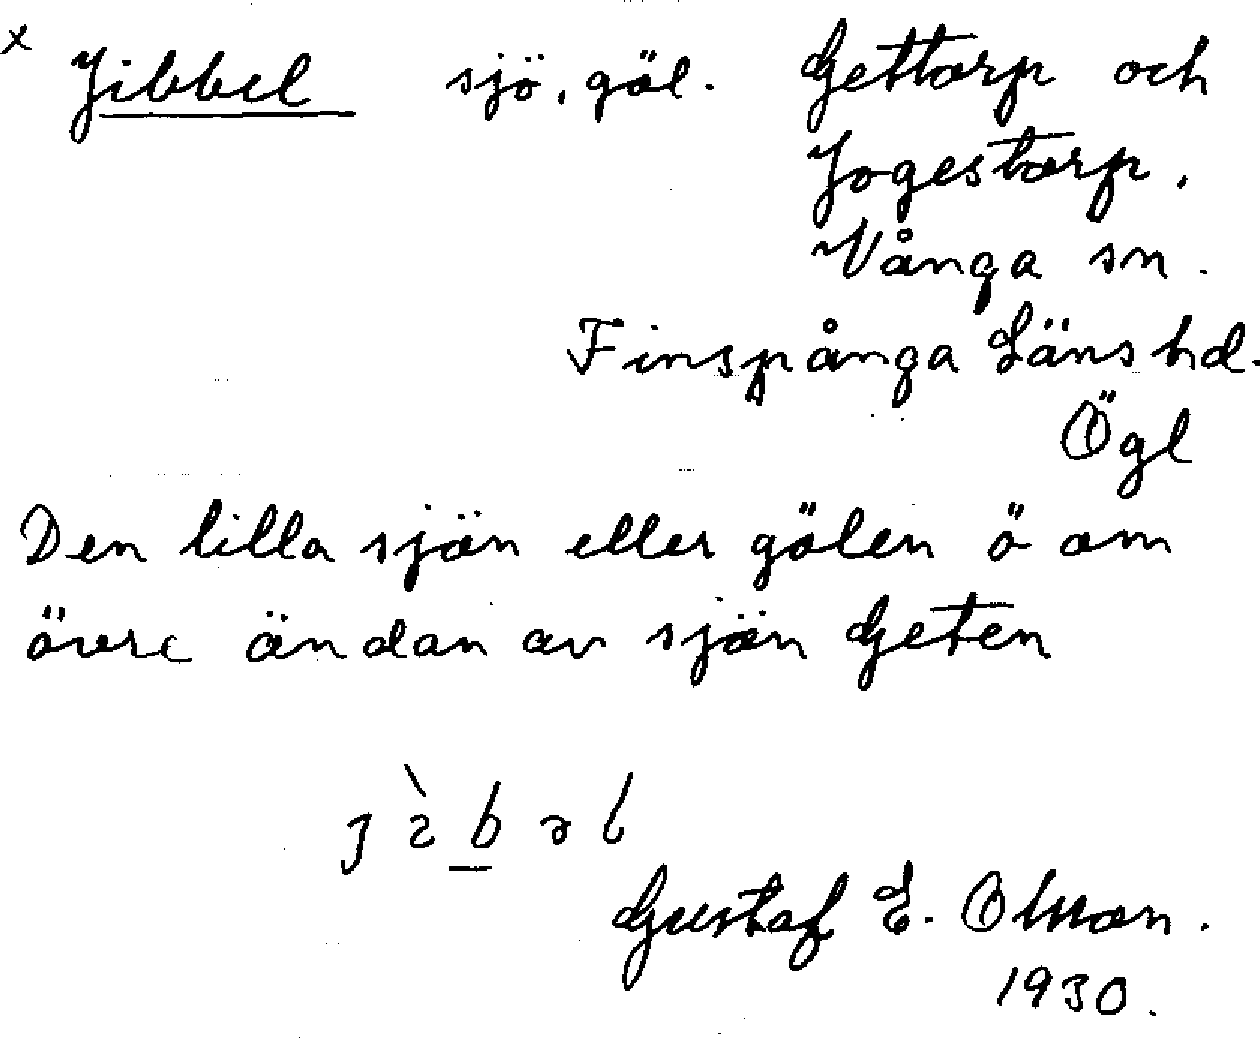 x Jibbel sjö, göl. Gettorp och
Jogestorp,
Vånga sn.
Finspånga Läns hd.
Ögl
Den lilla sjön eller gölen ö om
övre ändan av sjön Geten
Gustaf E. Olsson.
1930.